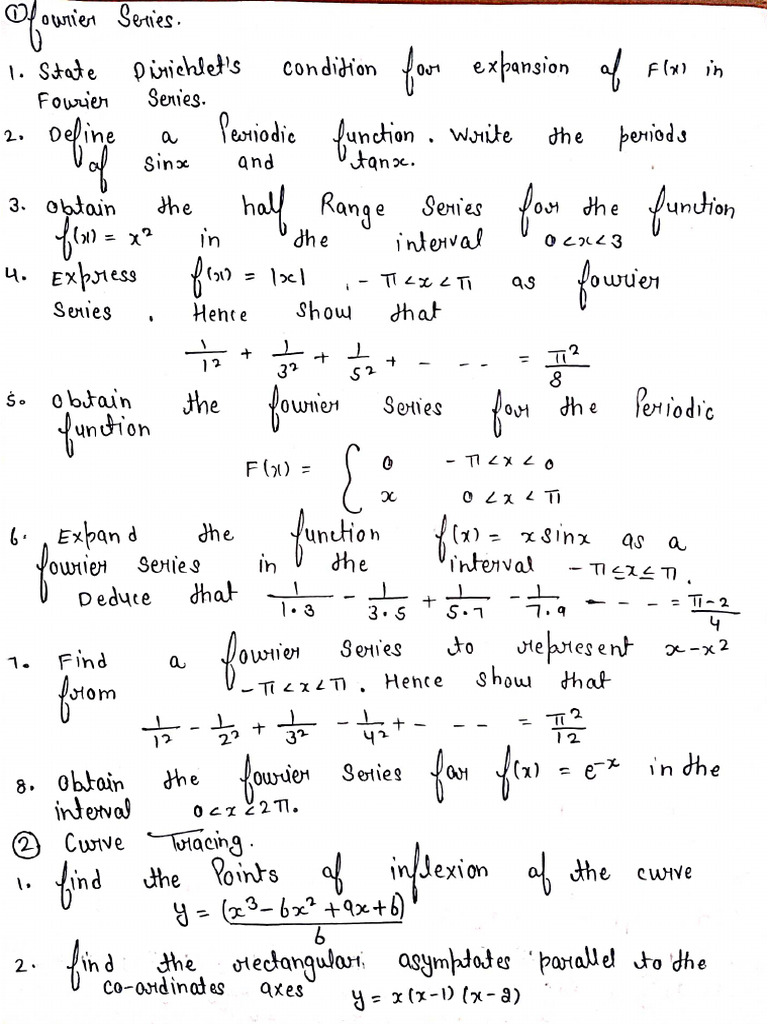 ① Fourier Series.
1. State Dirichlet's condition for expansion of F(x) in
Fourier Series.
2. Define a Periodic function. Write the periods
of sinx and tanx.
3. Obtain the half Range Series for the function
f(x) = x² in the interval 0<x<3
4. Express f(x) = |x| , -π<x<π as fourier
Series. Hence show that
1/1² + 1/3² + 1/5² + - -- = π²/8
5. Obtain the fourier Series for the Periodic
function
F(x) = { 0 -π<x<0
x 0<x<π
6. Expand the function f(x) = x sinx as a
fourier series in the interval -π≤x≤π.
Deduce that 1/1·3 - 1/3·5 + 1/5·7 - 1/7·9 - - - = π-2/4
7. Find a fourier series to represent x-x²
from -π<x<π. Hence show that
1/1² - 1/2² + 1/3² - 1/4² + - -- = π²/12
8. Obtain the fourier Series for f(x) = e⁻ˣ in the
interval 0<x<2π.
② Curve Tracing.
1. find the Points of inflexion of the curve
y = (x³-6x²+9x+6)/6
2. find the rectangular asymptates parallel to the
co-ordinates axes y = x(x-1)(x-2)